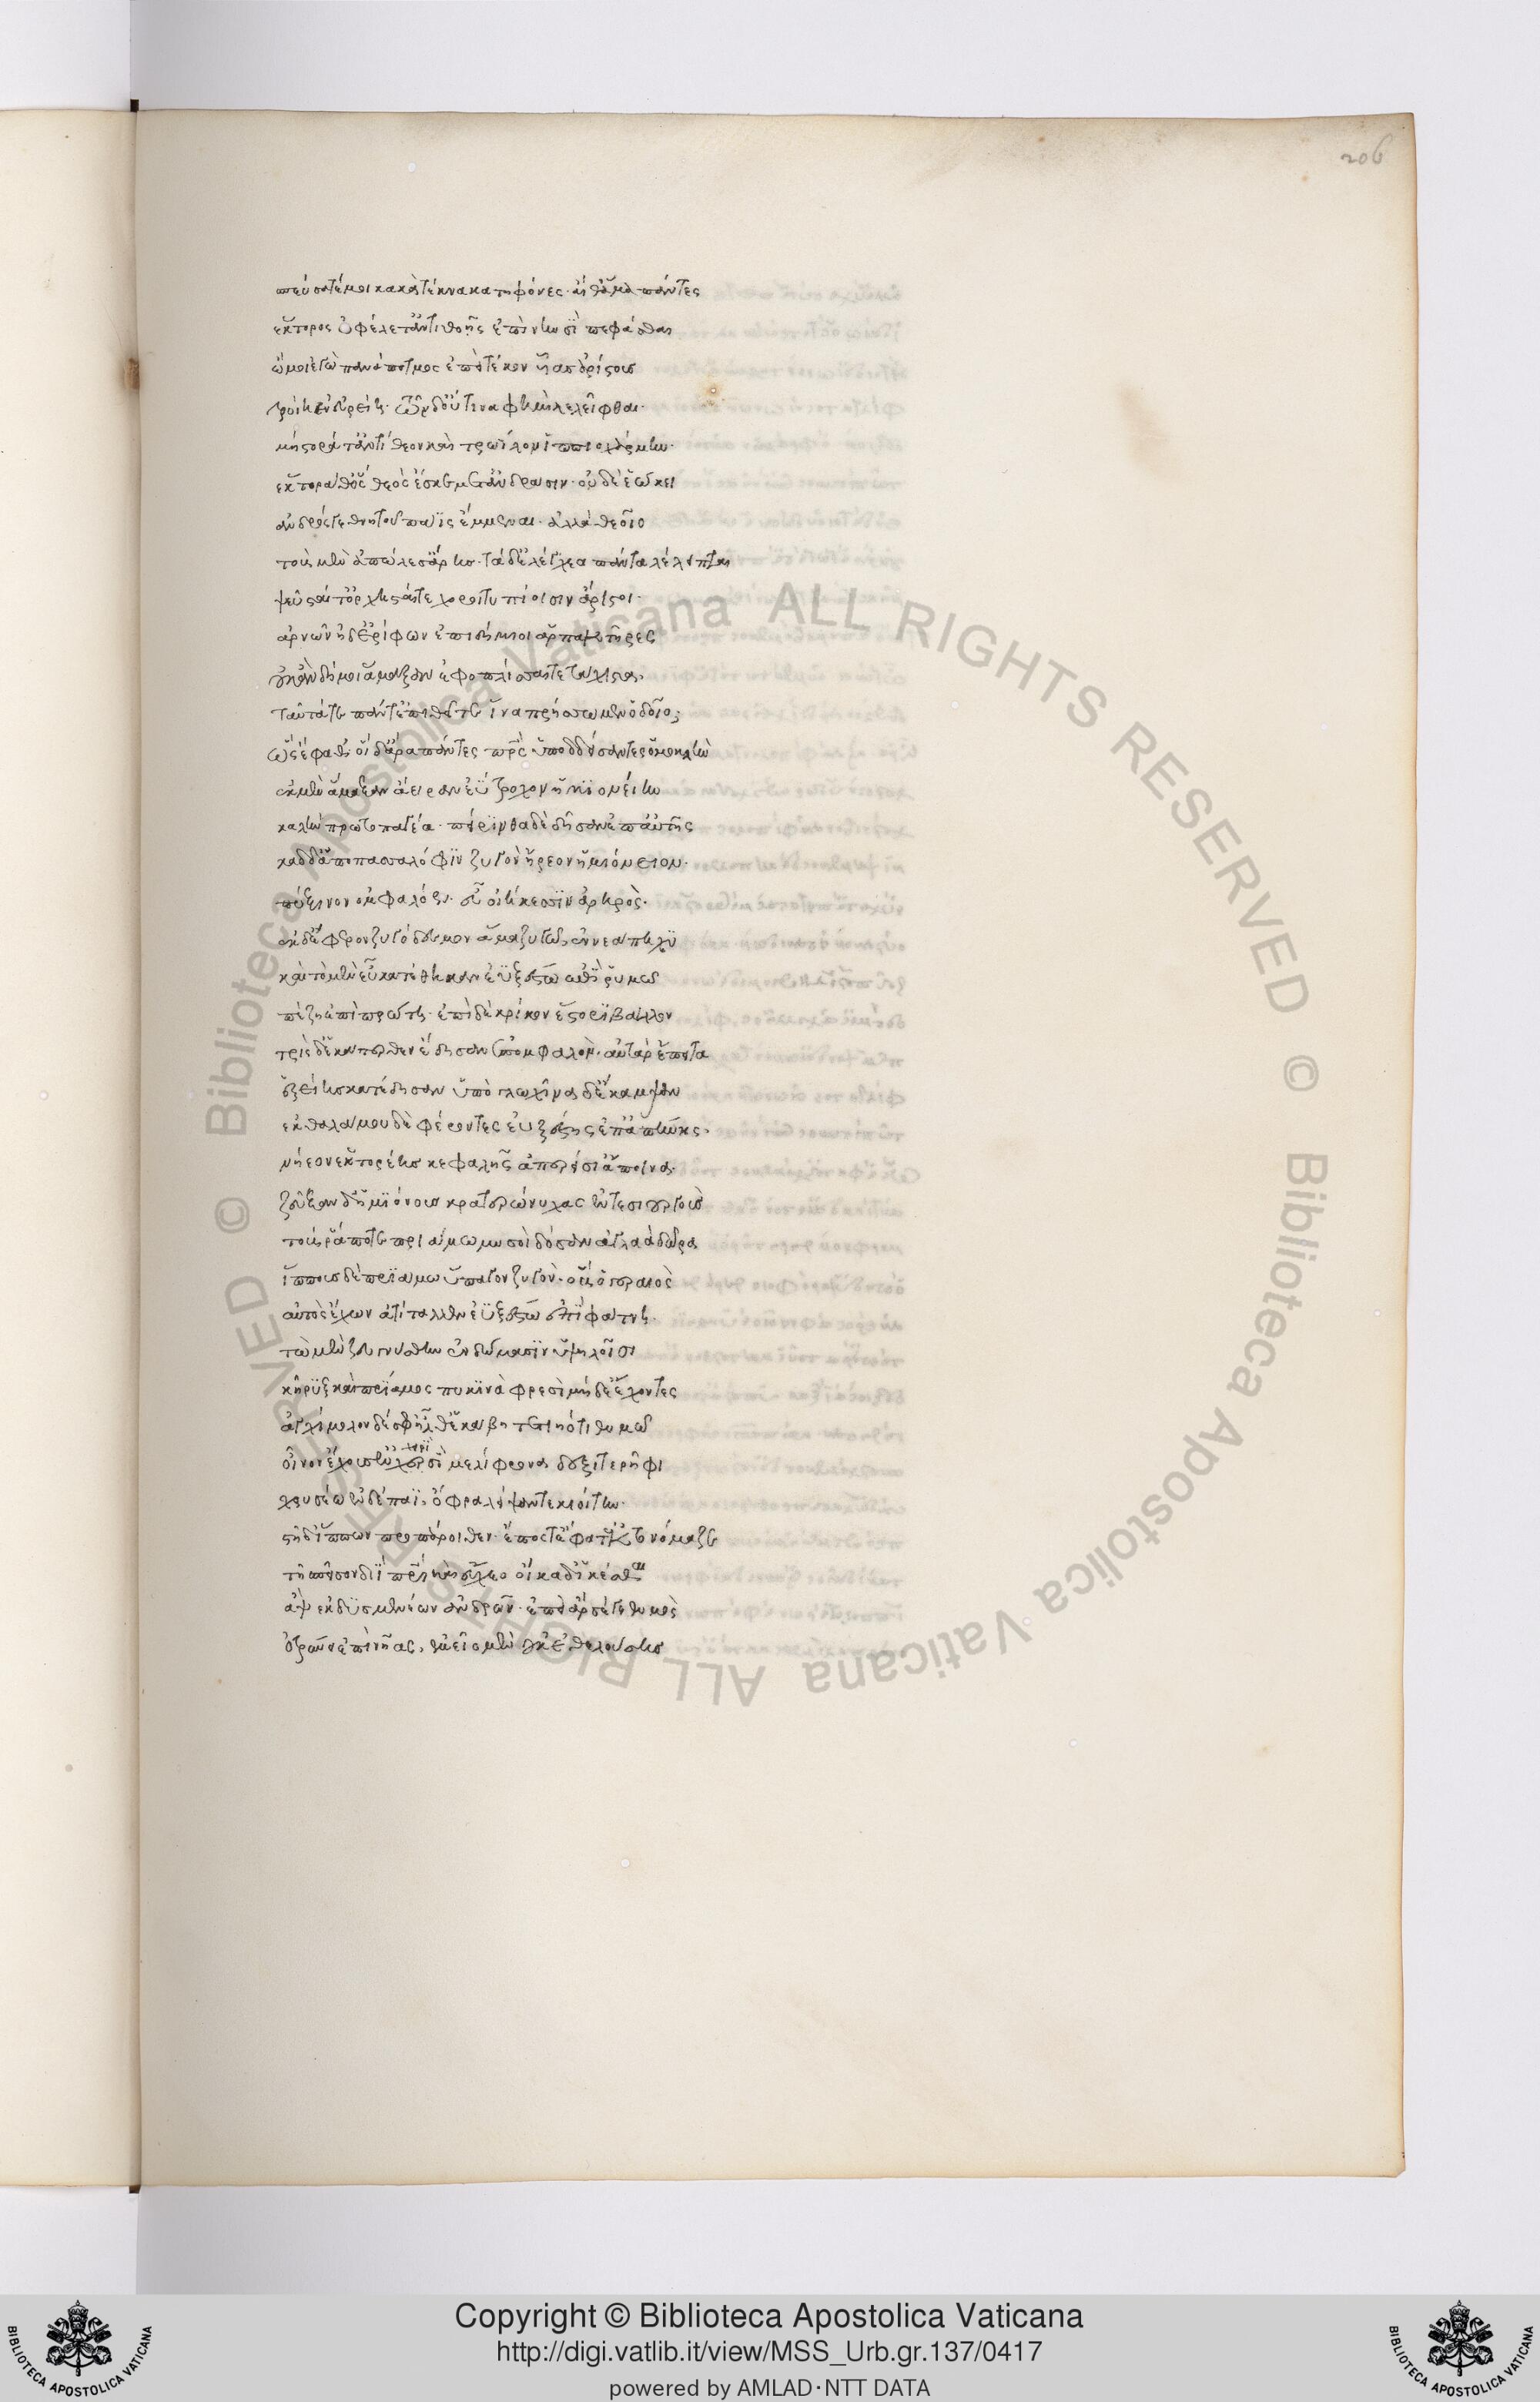 σπεύσατέ μοι κακὰ τέκνα κατηφόνες· αἴθ' ἅμα πάντες
ἕκτορος ὠφέλετ' ἀντὶ θοῇς ἐπὶ νηυσὶ πεφάσθαι
ὤμοι ἐγὼ πανάποτμος ἐπεὶ τέκον υἷας ἀρίστους
τροίῃ ἐν εὐρείῃ· τῶν δ' οὔτινα φημὶ λελεῖφθαι·
μήστορά τ' ἀντίθεον καὶ τρωΐλον ἱππιοχάρμην·
ἕκτορα θ' ὃς θεὸς ἔσκε μετ' ἀνδράσιν· οὐδὲ ἐώκει
ἀνδρός γε θνητοῦ παΐς ἔμμεναι· ἀλλὰ θεοῖο
τοὺς μὲν ἀπώλεσ' ἄρης· τὰ δ' ἐλέγχεα πάντα λέλειπται
ψεῦσταί τ' ὀρχησταί τε χοροιτυπίοισιν ἄριστοι·
ἀρνῶν ἠδ' ἐρίφων ἐπιδήμιοι ἁρπακτῆρες
οὐκ ἂν δή μοι ἅμαξαν ἐφοπλίσσαιτε τάχιστα·
ταῦτά τε πάντ' ἐπιθεῖτε ἵνα πρήσσωμεν ὁδοῖο;
ὣς ἔφαθ' οἱ δ' ἄρα πάντες πρὸς ὑποδδείσαντες ὁμοκλὴν
ἐκ μὲν ἅμαξαν ἄειραν ἐΰτροχον ἡμιονείην
καλὴν πρωτοπαγέα· πείρινθα δὲ δῆσαν ἐπ' αὐτῆς
καδδ' ἀπὸ πασσαλόφιν ζυγὸν ᾕρεον ἡμιόνειον·
πύξινον ὀμφαλόεν· εὖ οἰήκεσσιν ἀρηρὸς·
ἐκ δ' ἔφερον ζυγόδεσμον ἅμα ζυγῷ ἐννεάπηχυ
καὶ τὸ μὲν εὖ κατέθηκαν ἐϋξέστῳ ἐπὶ ῥυμῷ
πέζῃ ἐπὶ πρώτῃ· ἐπὶ δὲ κρίκον ἕστορι βάλλον
τρὶς δ' ἑκάτερθεν ἔδησαν ἐπ' ὀμφαλόν· αὐτὰρ ἔπειτα
ἑξείης κατέδησαν ὑπὸ γλωχῖνα δ' ἔκαμψαν
ἐκ θαλάμου δὲ φέροντες ἐϋξέστης ἐπ' ἀπήνης·
νήεον ἑκτορέης κεφαλῆς ἀπερείσι' ἄποινα·
ζεῦξαν δ' ἡμιόνους κρατερώνυχας ἐντεσιεργοὺς
τούς ῥά ποτε πριάμῳ μυσοὶ δόσαν ἀγλαὰ δῶρα
ἵππους δὲ πριάμῳ ὕπαγον ζυγὸν· οὓς ὁ γεραιὸς
αὐτὸς ἔχων ἀτίταλλεν ἐϋξέστῳ ἐπὶ φάτνῃ·
τὼ μὲν ζευγνύσθην ἐν δώμασιν ὑψηλοῖσι
κῆρυξ καὶ πρίαμος πυκινὰ φρεσὶ μήδε' ἔχοντες
ἀγχίμολον δέ σφ' ἦλθ' ἑκάβη τετιηότι θυμῷ
οἶνον ἔχουσ' ἐν χειρὶ μελίφρονα δεξιτερῆφι
χρυσέῳ ἐν δέπαϊ, ὄφρα λείψαντε κιοίτην·
στῆ δ' ἵππων προπάροιθεν· ἔπος τ' ἔφατ' ἔκ τ' ὀνόμαζε
τῆ σπεῖσον διῒ πατρὶ καὶ εὔχεο οἴκαδ' ἱκέσθαι
ἂψ ἐκ δυσμενέων ἀνδρῶν· ἐπεὶ ἂρ σέ γε θυμὸς
ὀτρύνει ἐπὶ νῆας, ἐμεῖο μὲν οὐκ ἐθελούσης
206
Copyright © Biblioteca Apostolica Vaticana
http://digi.vatlib.it/view/MSS_Urb.gr.137/0417
powered by AMLAD·NTT DATA